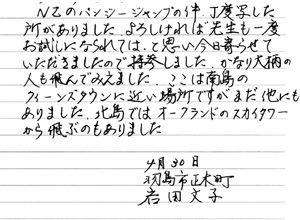 NZのバンジージャンプの件、丁度写した
所がありました。よろしければ先生も一度
お試しになられては、と思い今日寄らせて
いただきましたので持参しました。かなり大柄の
人も飛んでみえました。ここは南島の
クィーンズタウンに近い場所ですがまだ他にも
ありました。北島ではオークランドのスカイタワー
から飛ぶのもありました
4月30日
羽島市正木町
岩田文子